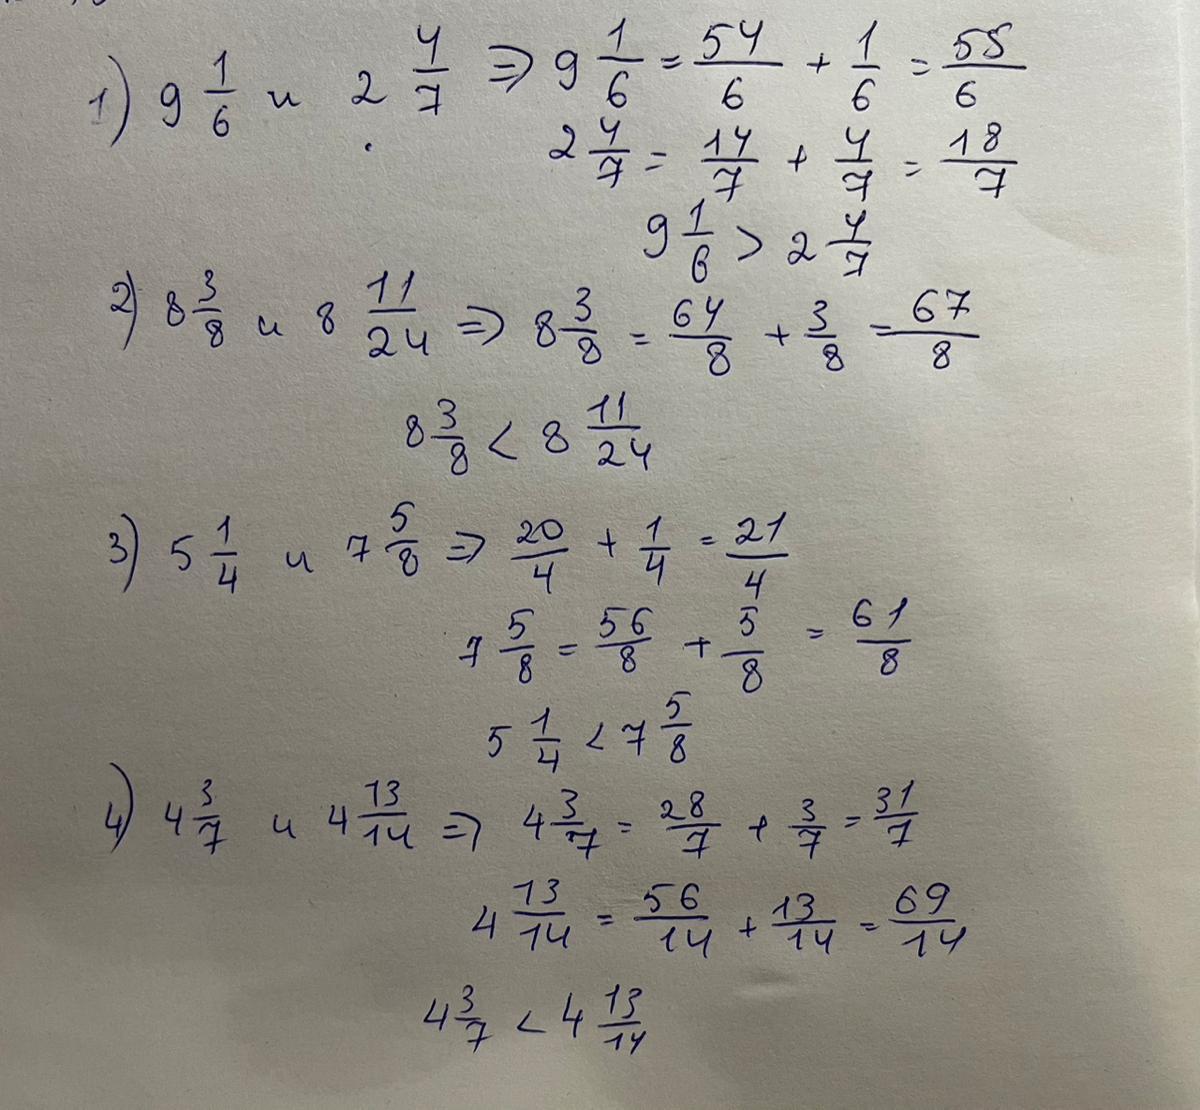 1) 9 1/6 и 2 4/7 => 9 1/6 = 54/6 + 1/6 = 55/6
2 4/7 = 14/7 + 4/7 = 18/7
9 1/6 > 2 4/7
2) 8 3/8 и 8 11/24 => 8 3/8 = 64/8 + 3/8 = 67/8
8 3/8 < 8 11/24
3) 5 1/4 и 7 5/8 => 20/4 + 1/4 = 21/4
7 5/8 = 56/8 + 5/8 = 61/8
5 1/4 < 7 5/8
4) 4 3/7 и 4 13/14 => 4 3/7 = 28/7 + 3/7 = 31/7
4 13/14 = 56/14 + 13/14 = 69/14
4 3/7 < 4 13/14